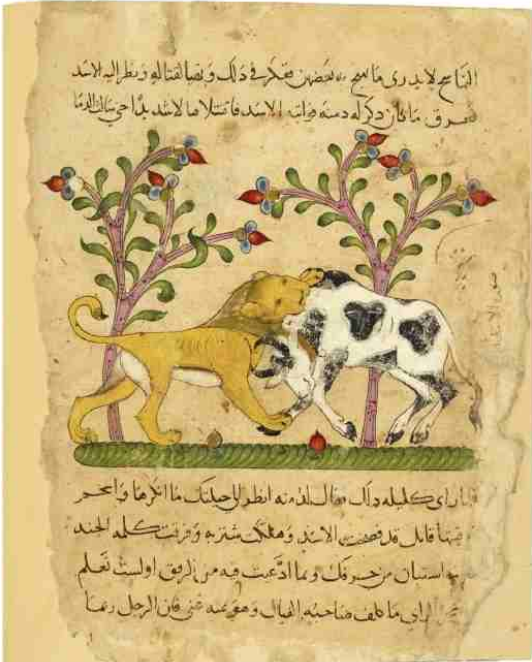 الناصح لا يدري ما يهيج به بعضهن ففكر في ذلك وتهيا لقتاله ونظر اليه الاسد
فعرف ما كان ذكر له دمنه فواثبه الاسد فاقتتلا قتالا شديدا حتى سالت الدما
صورة الاسد
فلما راى كليله ذلك فقال لدمنه انظر الى حيلتك ما انكرها واوخم
قد فضحت الاسد وهلك شتربه وفرقت كلمه الجند
مع ما استبان من خرقك وبما ادعيت فيه من الرفق اولست تعلم
الراى ما كلف صاحبه القتال وهو عنه غنى فان الرجل ربما